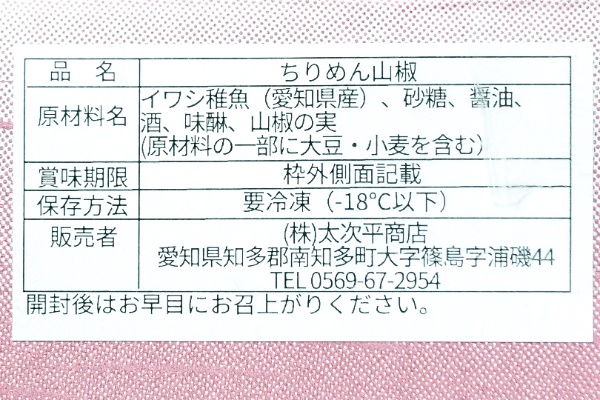 品 名 ちりめん山椒
原材料名 イワシ稚魚（愛知県産）、砂糖、醤油、
酒、味醂、山椒の実
(原材料の一部に大豆・小麦を含む)
賞味期限 枠外側面記載
保存方法 要冷凍（-18℃以下）
販売者 (株)太次平商店
愛知県知多郡南知多町大字篠島字浦磯44
TEL 0569-67-2954
開封後はお早目にお召上がりください。